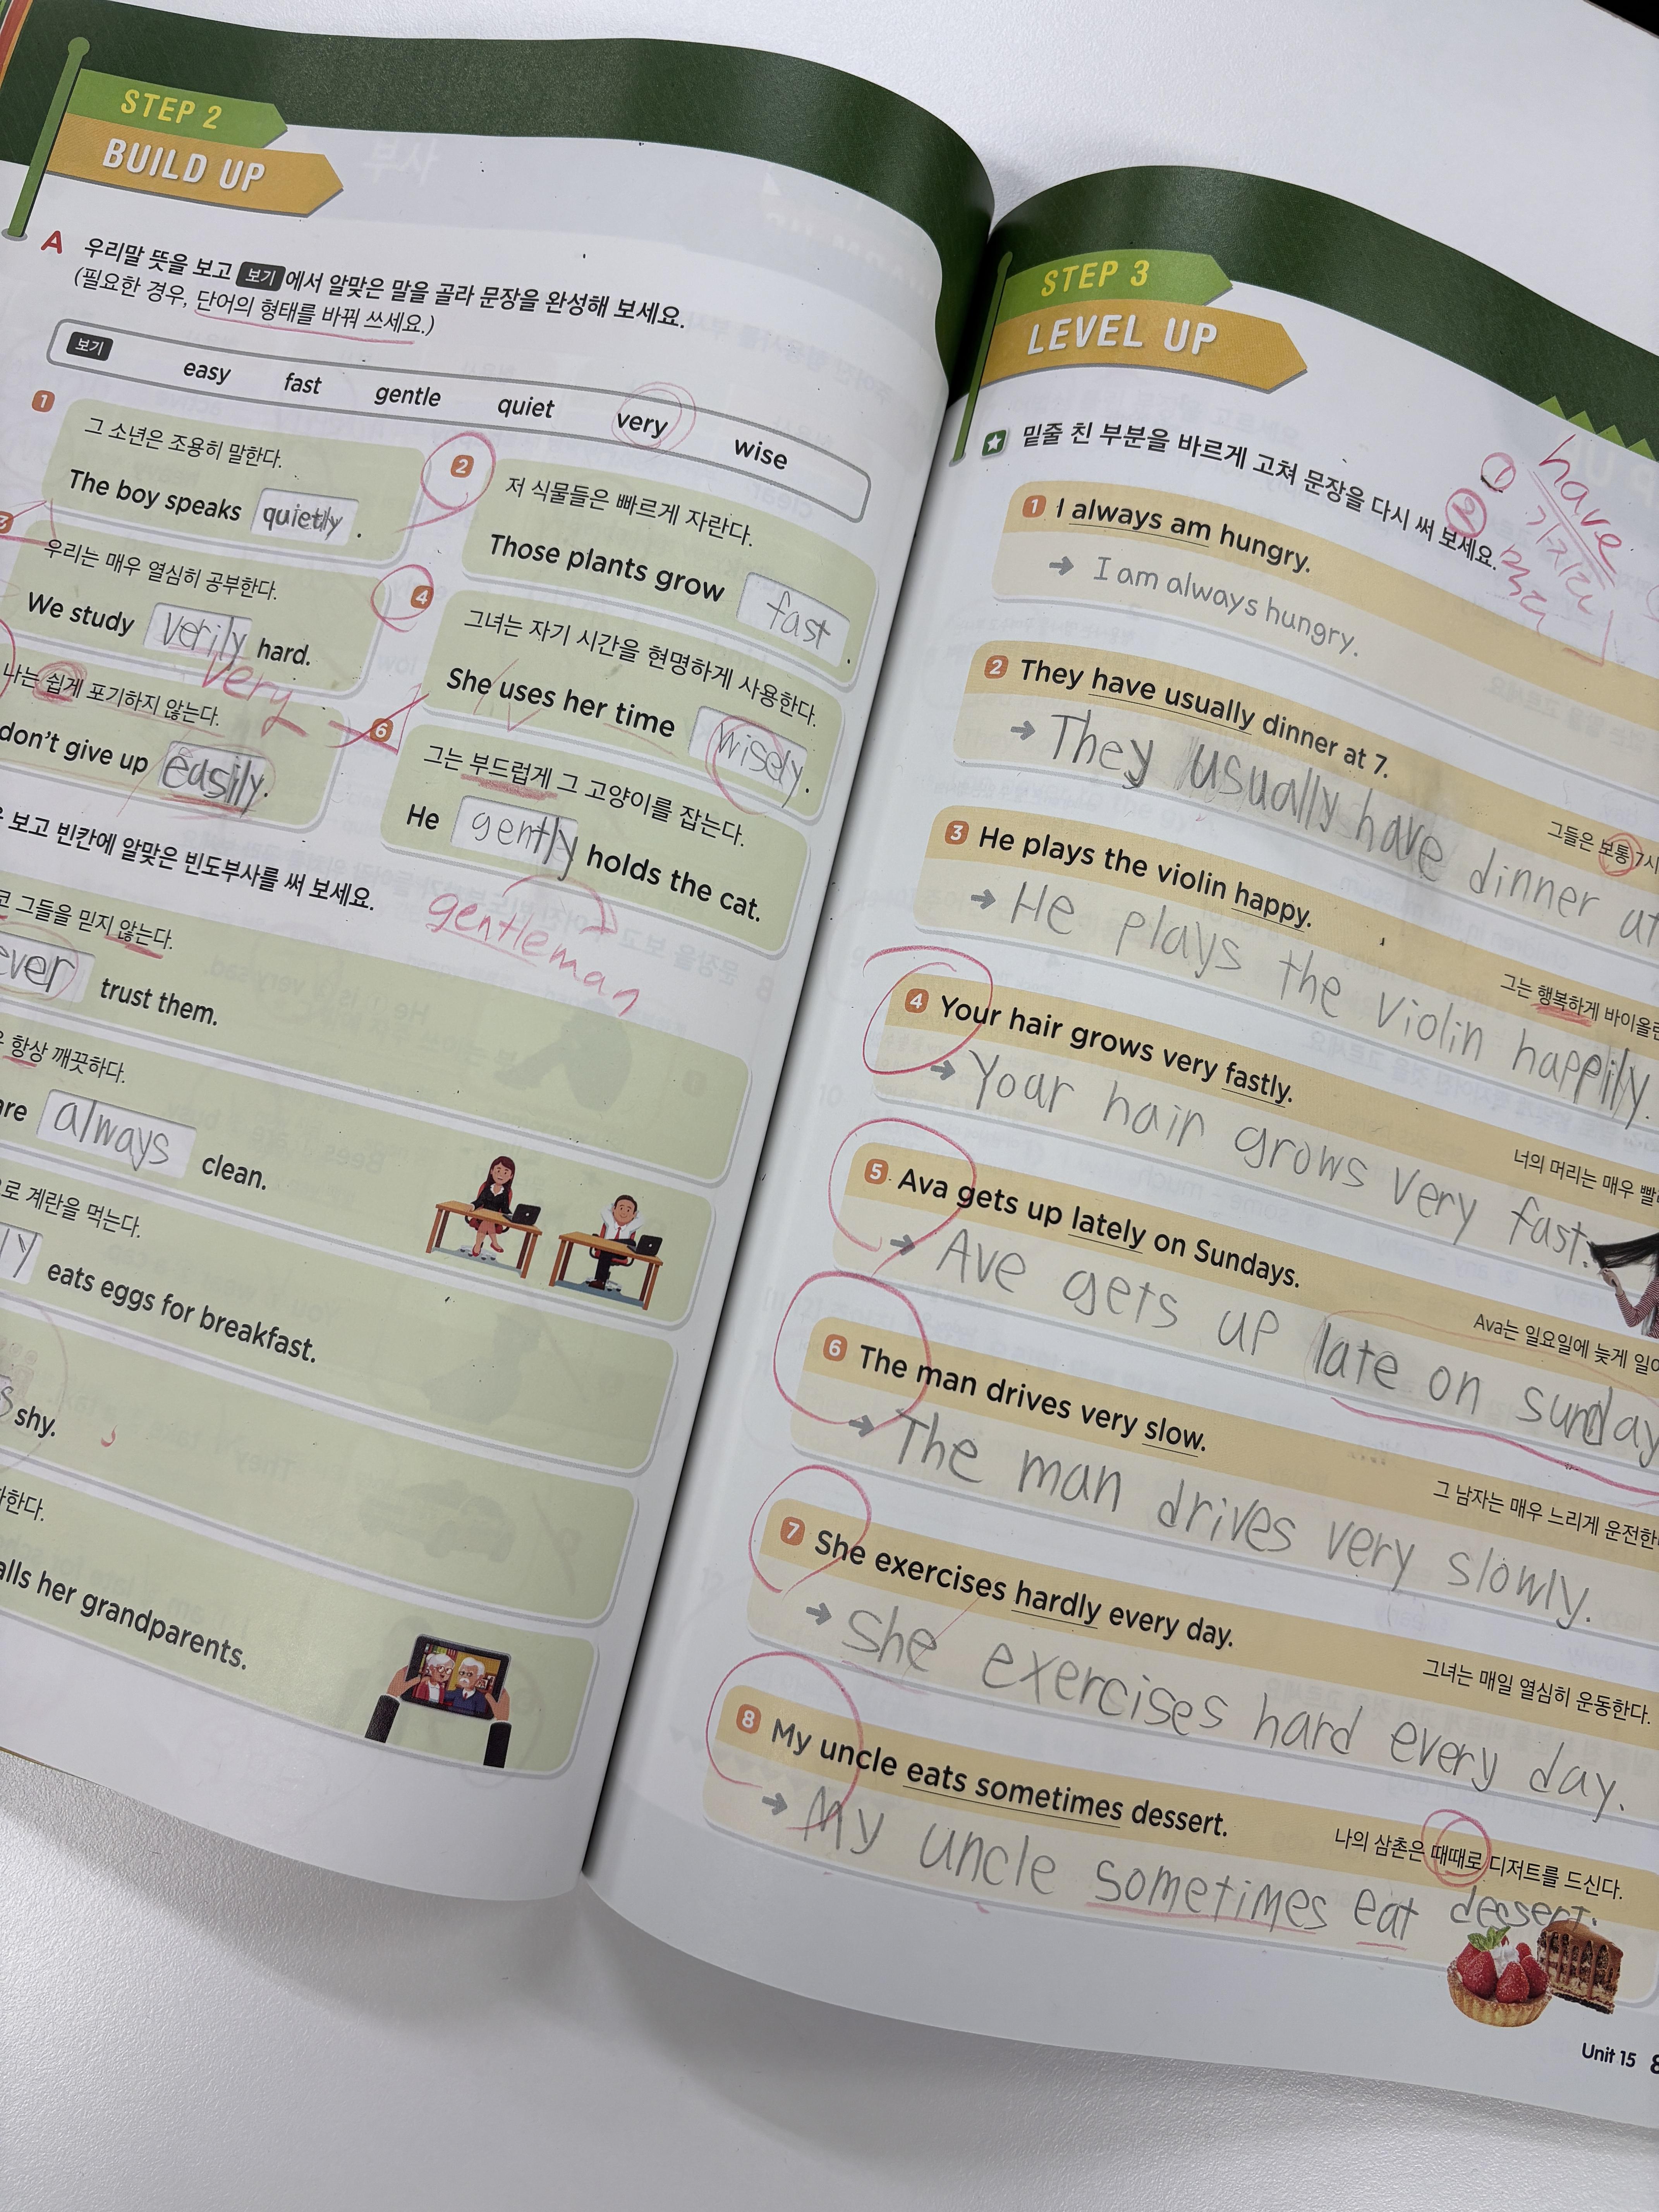 STEP 2
BUILD UP
A 우리말 뜻을 보고 보기 에서 알맞은 말을 골라 문장을 완성해 보세요.
(필요한 경우, 단어의 형태를 바꿔 쓰세요.)
보기 easy fast gentle quiet very wise
1 그 소년은 조용히 말한다.
The boy speaks quietly.
2 저 식물들은 빠르게 자란다.
Those plants grow fast.
3 우리는 매우 열심히 공부한다.
We study verily hard.
very
4 그녀는 자기 시간을 현명하게 사용한다.
She uses her time wisely.
나는 쉽게 포기하지 않는다.
don't give up easily.
6 그는 부드럽게 그 고양이를 잡는다.
He gently holds the cat.
gentleman
보고 빈칸에 알맞은 빈도부사를 써 보세요.
그들을 믿지 않는다.
ever trust them.
항상 깨끗하다.
are always clean.
로 계란을 먹는다.
ly eats eggs for breakfast.
s shy.
화한다.
alls her grandparents.
STEP 3
LEVEL UP
밑줄 친 부분을 바르게 고쳐 문장을 다시 써 보세요.
have
① 가지다
② 먹다
1 I always am hungry.
→ I am always hungry.
2 They have usually dinner at 7.
그들은 보통 7시
→ They usually have dinner at
3 He plays the violin happy.
그는 행복하게 바이올린
→ He plays the violin happily.
4 Your hair grows very fastly.
너의 머리는 매우 빨
→ Your hair grows very fast.
5 Ava gets up lately on Sundays.
Ava는 일요일에 늦게 일어
→ Ave gets up late on sunday
6 The man drives very slow.
그 남자는 매우 느리게 운전한
→ The man drives very slowly.
7 She exercises hardly every day.
그녀는 매일 열심히 운동한다.
→ She exercises hard every day.
8 My uncle eats sometimes dessert.
나의 삼촌은 때때로 디저트를 드신다.
→ My uncle sometimes eat dessert.
Unit 15